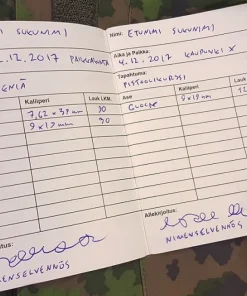 I SUKUNIMI
.12.2017 PAIKKAKUNTA
GNIÄ
Kaliiperi Lauk LKM.
7,62 x 39 mm 30
9 x 19 mm 30
oitus:
MENSELVENNÖS
Nimi: ETUNIMI SUKUNIMI
Aika ja Paikka:
4.12.2017 KAUPUNKI X
Tapahtuma:
PISTOOLIKURSSI
Ase Kaliiperi Lauk
GLOCK 9 x 19 mm 12
Allekirjoitus:
NIMENSELVENNÖS